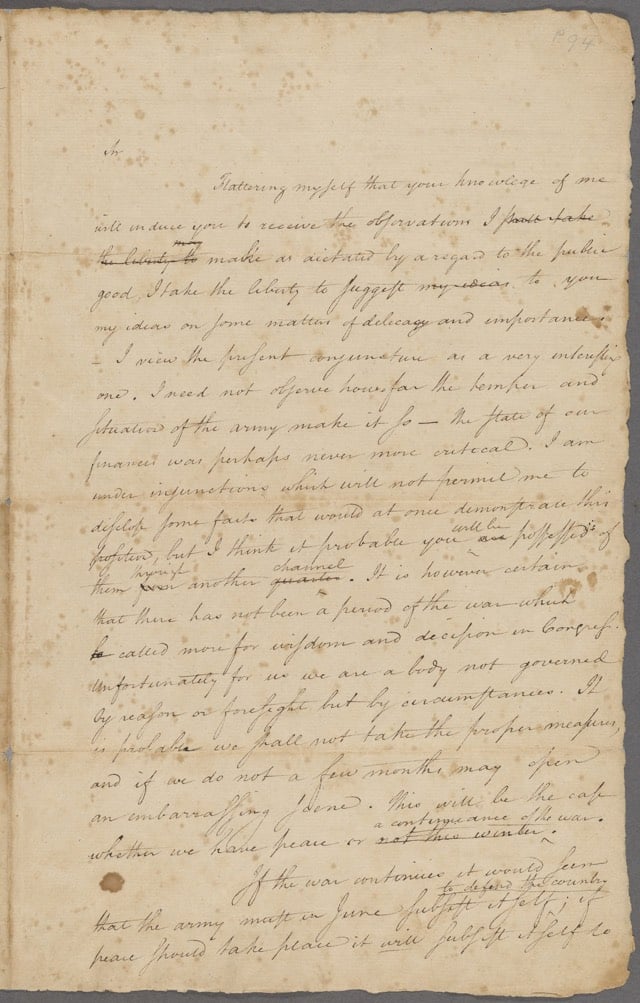 P 94
Sir
Flattering myself that your knowlege of me
will induce you to receive the observations I shall take
the liberty to may make as dictated by a regard to the public
good, I take the liberty to suggest my ideas to you
my ideas on some matters of delicacy and importance.
– I view the present conjuncture as a very interesting
one. I need not observe how far the temper and
situation of the army make it so — the state of our
finances was perhaps never more critical. I am
under injunctions which will not permit me to
disclose some facts that would at once demonstrate this
position, but I think it probable you are will be possessed of
them from through another quarter channel. It is however certain
that there has not been a period of the war which
called more for wisdom and decision in Congress.
Unfortunately for us we are a body not governed
by reason or foresight but by circumstances. It
is probable we shall not take the proper measures,
and if we do not a few months may open
an embarrassing scene. This will be the case
whether we have peace or not this winter a continuance of the war.
If the war continues it would seem
that the army must in June subsist itself to defend the country; if
peace should take place it will subsist itself to